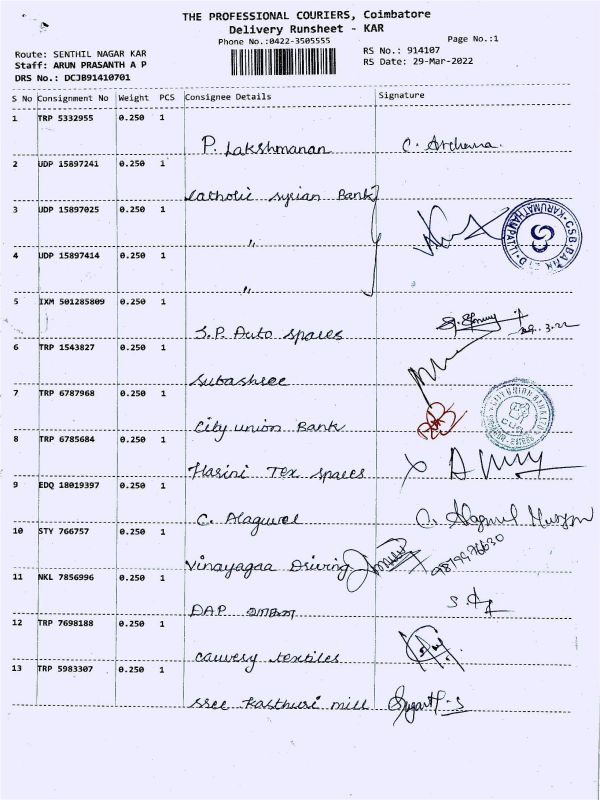 THE PROFESSIONAL COURIERS, Coimbatore
Delivery Runsheet - KAR
Phone No.:0422-3505555
Page No.:1
Route: SENTHIL NAGAR KAR
Staff: ARUN PRASANTH A P
DRS No.: DCJB91410701
RS No.: 914107
RS Date: 29-Mar-2022
S No Consignment No Weight PCS Consignee Details Signature
1 TRP 5332955 0.250 1
P. Lakshmanan C. Archena.
2 UDP 15897241 0.250 1
Catholic syrian Bank
3 UDP 15897025 0.250 1
"
CSB BANK LTD KARUMATHAMPATTI
4 UDP 15897414 0.250 1
"
5 IXM 501285809 0.250 1
S.P. Auto spares 29.3.22
6 TRP 1543827 0.250 1
Subashree
7 TRP 6787968 0.250 1
City union Bank
CITY UNION BANK LTD
CUB
8 TRP 6785684 0.250 1
Harini Tex spares
9 EDQ 18019397 0.250 1
C. Alaguvel
10 STY 766757 0.250 1
Vinayagaa Driving
11 NKL 7856996 0.250 1
DAP
12 TRP 7698188 0.250 1
cauvery textiles
13 TRP 5983307 0.250 1
sree kasthuri mill